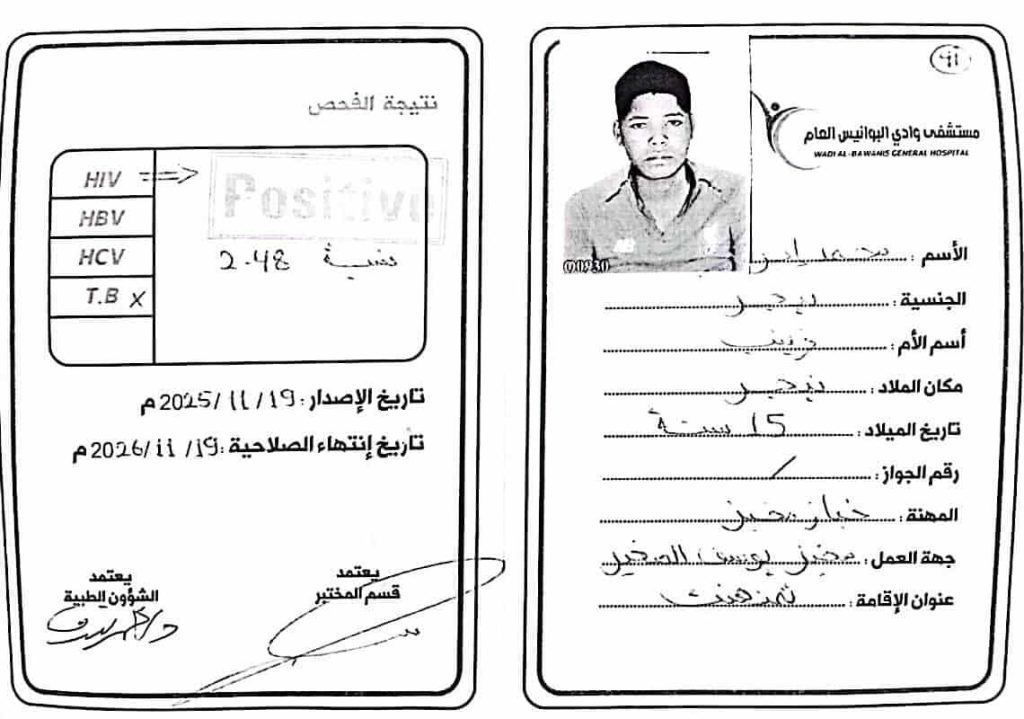 نتيجة الفحص
HIV
Positive
HBV
HCV
نسبة 2.48
T.B X
تاريخ الإصدار: 19/11/2025 م
تاريخ إنتهاء الصلاحية: 19/11/2026 م
يعتمد
الشؤون الطبية
يعتمد
قسم المختبر
مستشفى وادي البوانيس العام
WADI AL-BAWANIS GENERAL HOSPITAL
الأسم: محمد
الجنسية: نيجر
أسم الأم: زينب
مكان الملاد: نيجر
تاريخ الميلاد: 15 سنة
رقم الجواز: /
المهنة: خباز مخبز
جهة العمل: مخبز يوسف الصغير
عنوان الإقامة: تمنهنت